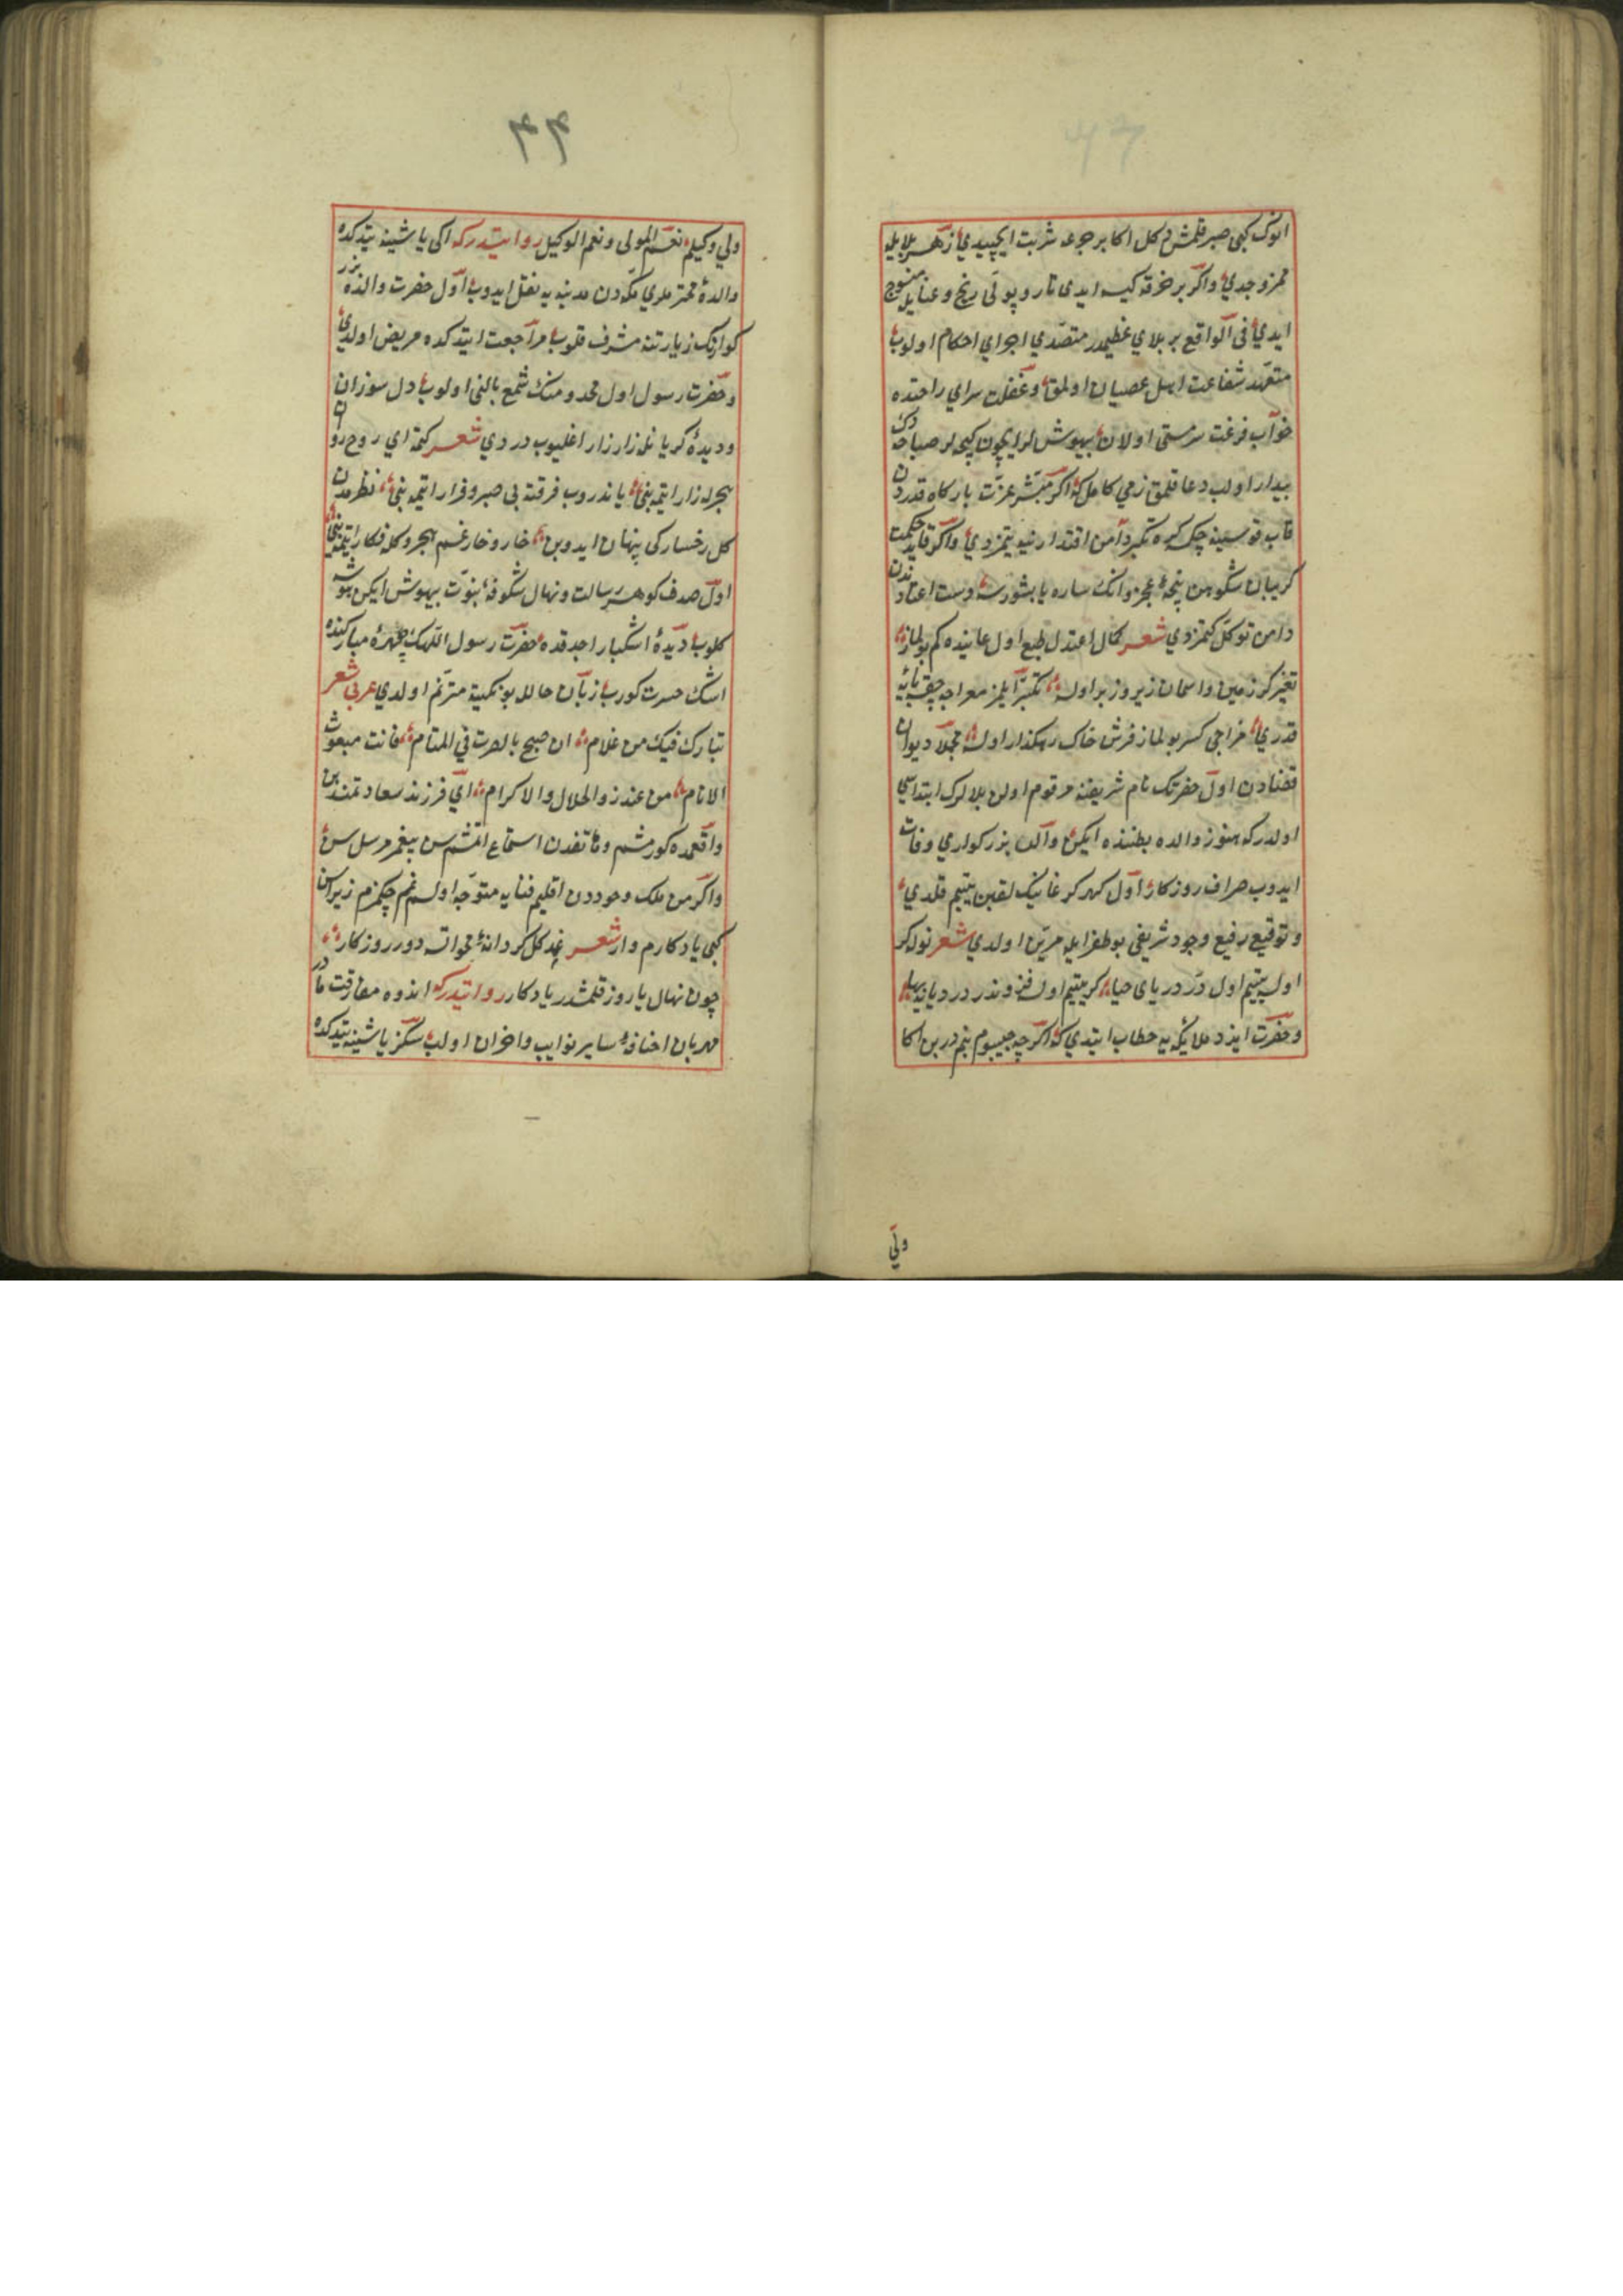 انوک کبی صبر قلمش دکل اکا بر جرعه شربت ایچیدی زهر بلایله
ممزوجدی واکر بر خرقه کیسه ایدی تار و پودی رنج و عنایله منسوج
ایدی فی الواقع بر بلای عظیمدر متصدی اجرای احکام اولوب
متعهد شفاعت اهل عصیان اولمق وغفلت سرای راحتده
خواب فرغت سرمستی اولان بیهوشلر ایچون کیجه لر صباحه دک
بیدار اولب دعا قلمق زهی کامل که اکر مبشر عزت بارکاه قدردن
قاب قوسینه چکسه کرد تکبر دامن اقتدارینه یتمزدی واکر قاید حکمت
کریبان شکوهن پنجۀ عجزه وانک ساره یا بشورسه دست اعتادندن
دامن توکل کتمزدی شعر کمال اعتدل طبع اول عاینده کم بولماز
تغیر کر زمین و اسمان زیر و زبر اولسه تکبر ایلمز معراجه چقسه پایۀ
قدری مزاجی کسر بولماز فرش خاک رهکذار اولسه مجملا دیوان
قضادن اول حضرتک نام شریفنه مرقوم اولن بلالرک ابتداسی
اولدر که هنوز والده بطننده ایکن والد بزرکواری وفات
ایدوب صراف روزکار اول کهر کرغانیک لقبن یتیم قلدی
و توقیع رفیع وجود شریفی بو طغرایله مزین اولدی شعر نوله کر
اولسه یتیم اول در دریای حیا کر یتیم اولسه فزوندر در دیایه بها
وحضرت ایزد ملایکه یه خطاب ایتدی که اکرچه حبیبوم یتیمدر بن اکا
ولی
۴۴
ولی وکیلم نعم المولی ونعم الوکیل روایتدرکه اکی یاشینه یتدکده
والدۀ محترملری مکه دن مدینه یه نقل ایدوب اول حضرت والدۀ بزر
کوارنک زیارتنه مشرف قلوب مراجعت ایتدکده مریض اولدی
وحضرت رسول اول مخدومنک شمع بالنی اولوب دل سوزان
ودیدۀ کریانله زار زار اغلیوب دردی شعر کتمه ای روح روان
هجرله زار ایتمه بنی یاندروب فرقته بی صبر وقرار ایتمه بنی نظرمدن
کل رخسارکی پنهان ایدوبن خار وخار غم هجروکله فکار ایتمه بنی
اول صدف کوهر رسالت ونهال شکوفۀ نبوت بیهوش ایکن هوشه
کلوب دیدۀ اشکبار اجدقده حضرت رسول اللهک چهرۀ مبارکنده
اشک حسرت کورب زبان حالله بونکیته مترنم اولدی عربی شعر
تبارک فیک من غلام ان صح ما ابصرت فی المنام فانت مبعوث
الانام من عند ذوالجلال والاکرام ای فرزند سعادتمند بن
واقعمده کورمشم وهاتفدن استماع اتمشم سن پیغمبر مرسل سن
واکر من ملک وجوددن اقلیم فنایه متوجه اولسم غم چکمزم زیرا سن
کبی یادکارم وار شعر غمد کل کر دانۀ محو اتسه دور روزکار
چون نهال یا روز قلمشدر یادکار روایتدرکه اندوه مفارقت مادر
مهربان اخنافۀ سایر نوایب واحزان اولب سکز یاشینه یتدکده